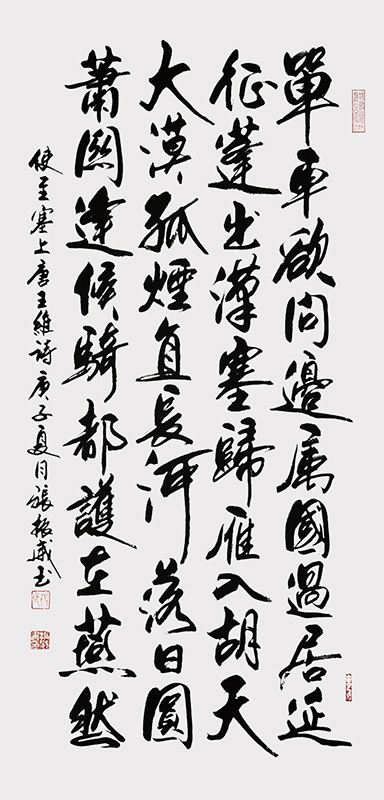 單車欲問邊属國過居延
征蓬出漢塞歸雁入胡天
大漠孤煙直長河落日圓
蕭関逢候騎都護在燕然
使至塞上唐王維詩庚子夏月張振武书